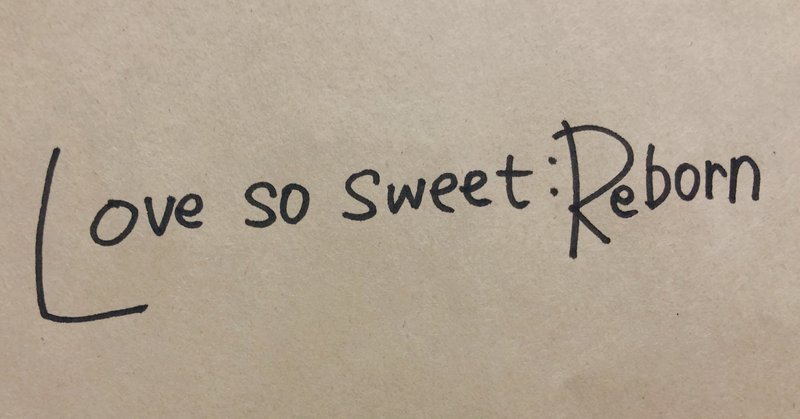 Love so sweet:Reborn